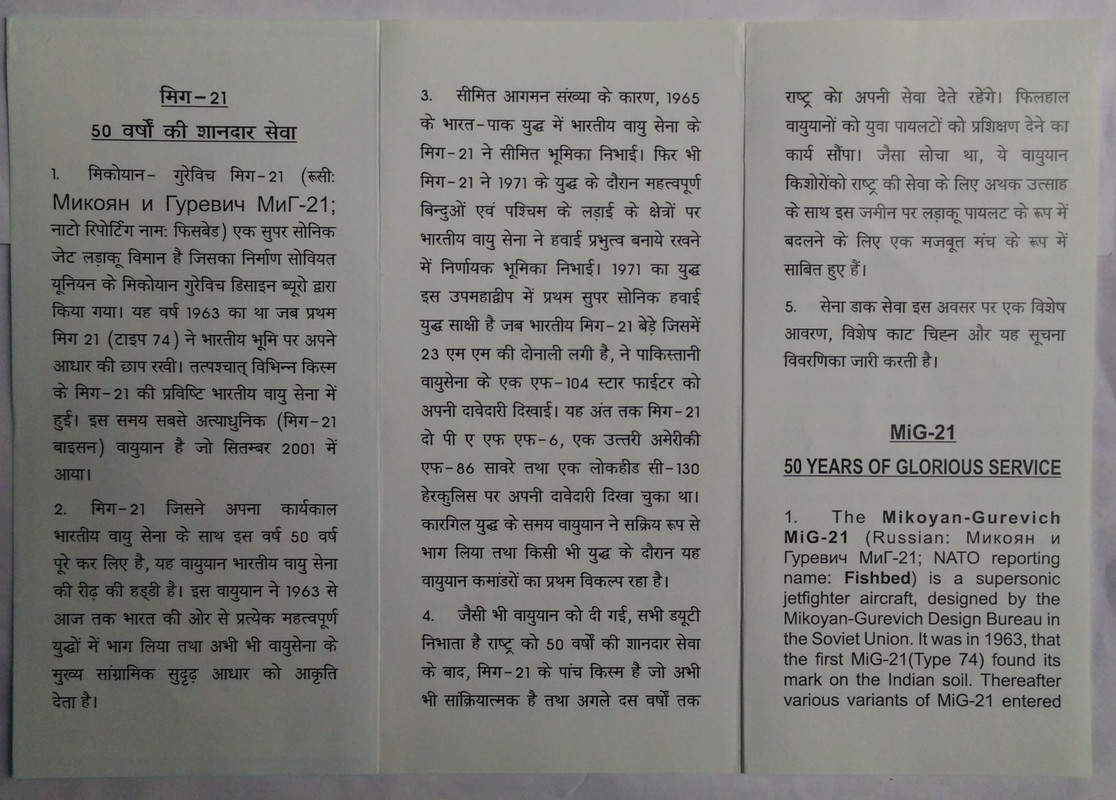 मिग–21
50 वर्षों की शानदार सेवा
1. मिकोयान– गुरेविच मिग–21 (रूसी:
Микоян и Гуревич МиГ-21;
नाटो रिपोर्टिग नाम: फिसबेड) एक सुपर सोनिक
जेट लड़ाकू विमान है जिसका निर्माण सोवियत
यूनियन के मिकोयान गुरेविच डिसाइन ब्यूरो द्वारा
किया गया। यह वर्ष 1963 का था जब प्रथम
मिग 21 (टाइप 74) ने भारतीय भूमि पर अपने
आधार की छाप रखी। तत्पश्चात् विभिन्न किस्म
के मिग–21 की प्रविष्टि भारतीय वायु सेना में
हुई। इस समय सबसे अत्याधुनिक (मिग–21
बाइसन) वायुयान है जो सितम्बर 2001 में
आया।
2. मिग–21 जिसने अपना कार्यकाल
भारतीय वायु सेना के साथ इस वर्ष 50 वर्ष
पूरे कर लिए है, यह वायुयान भारतीय वायु सेना
की रीढ़ की हड्डी है। इस वायुयान ने 1963 से
आज तक भारत की ओर से प्रत्येक महत्वपूर्ण
युद्धों में भाग लिया तथा अभी भी वायुसेना के
मुख्य सांग्रामिक सुदृढ़ आधार को आकृति
देता है।
3. सीमित आगमन संख्या के कारण, 1965
के भारत–पाक युद्ध में भारतीय वायु सेना के
मिग–21 ने सीमित भूमिका निभाई। फिर भी
मिग–21 ने 1971 के युद्ध के दौरान महत्वपूर्ण
बिन्दुओं एवं पश्चिम के लड़ाई के क्षेत्रों पर
भारतीय वायु सेना ने हवाई प्रभुत्व बनाये रखने
में निर्णायक भूमिका निभाई। 1971 का युद्ध
इस उपमहाद्वीप में प्रथम सुपर सोनिक हवाई
युद्ध साक्षी है जब भारतीय मिग–21 बेड़े जिसमें
23 एम एम की दोनाली लगी है, ने पाकिस्तानी
वायुसेना के एक एफ–104 स्टार फाईटर को
अपनी दावेदारी दिखाई। यह अंत तक मिग–21
दो पी ए एफ एफ–6, एक उत्तरी अमेरीकी
एफ–86 सावरे तथा एक लोकहीड सी–130
हेरकुलिस पर अपनी दावेदारी दिखा चुका था।
कारगिल युद्ध के समय वायुयान ने सक्रिय रूप से
भाग लिया तथा किसी भी युद्ध के दौरान यह
वायुयान कमांडरों का प्रथम विकल्प रहा है।
4. जैसी भी वायुयान को दी गई, सभी डयूटी
निभाता है राष्ट्र को 50 वर्षों की शानदार सेवा
के बाद, मिग–21 के पांच किस्म है जो अभी
भी सांक्रियात्मक है तथा अगले दस वर्षों तक
राष्ट्र केा अपनी सेवा देते रहेंगे। फिलहाल
वायुयानों को युवा पायलटों को प्रशिक्षण देने का
कार्य सौंपा। जैसा सोचा था, ये वायुयान
किशोरोंको राष्ट्र की सेवा के लिए अथक उत्साह
के साथ इस जमीन पर लड़ाकू पायलट के रूप में
बदलने के लिए एक मजबूत मंच के रूप में
साबित हुए हैं।
5. सेना डाक सेवा इस अवसर पर एक विशेष
आवरण, विशेष काट चिह्न और यह सूचना
विवरणिका जारी करती है।
MiG-21
50 YEARS OF GLORIOUS SERVICE
1. The Mikoyan-Gurevich
MiG-21 (Russian: Микоян и
Гуревич МиГ-21; NATO reporting
name: Fishbed) is a supersonic
jetfighter aircraft, designed by the
Mikoyan-Gurevich Design Bureau in
the Soviet Union. It was in 1963, that
the first MiG-21(Type 74) found its
mark on the Indian soil. Thereafter
various variants of MiG-21 entered